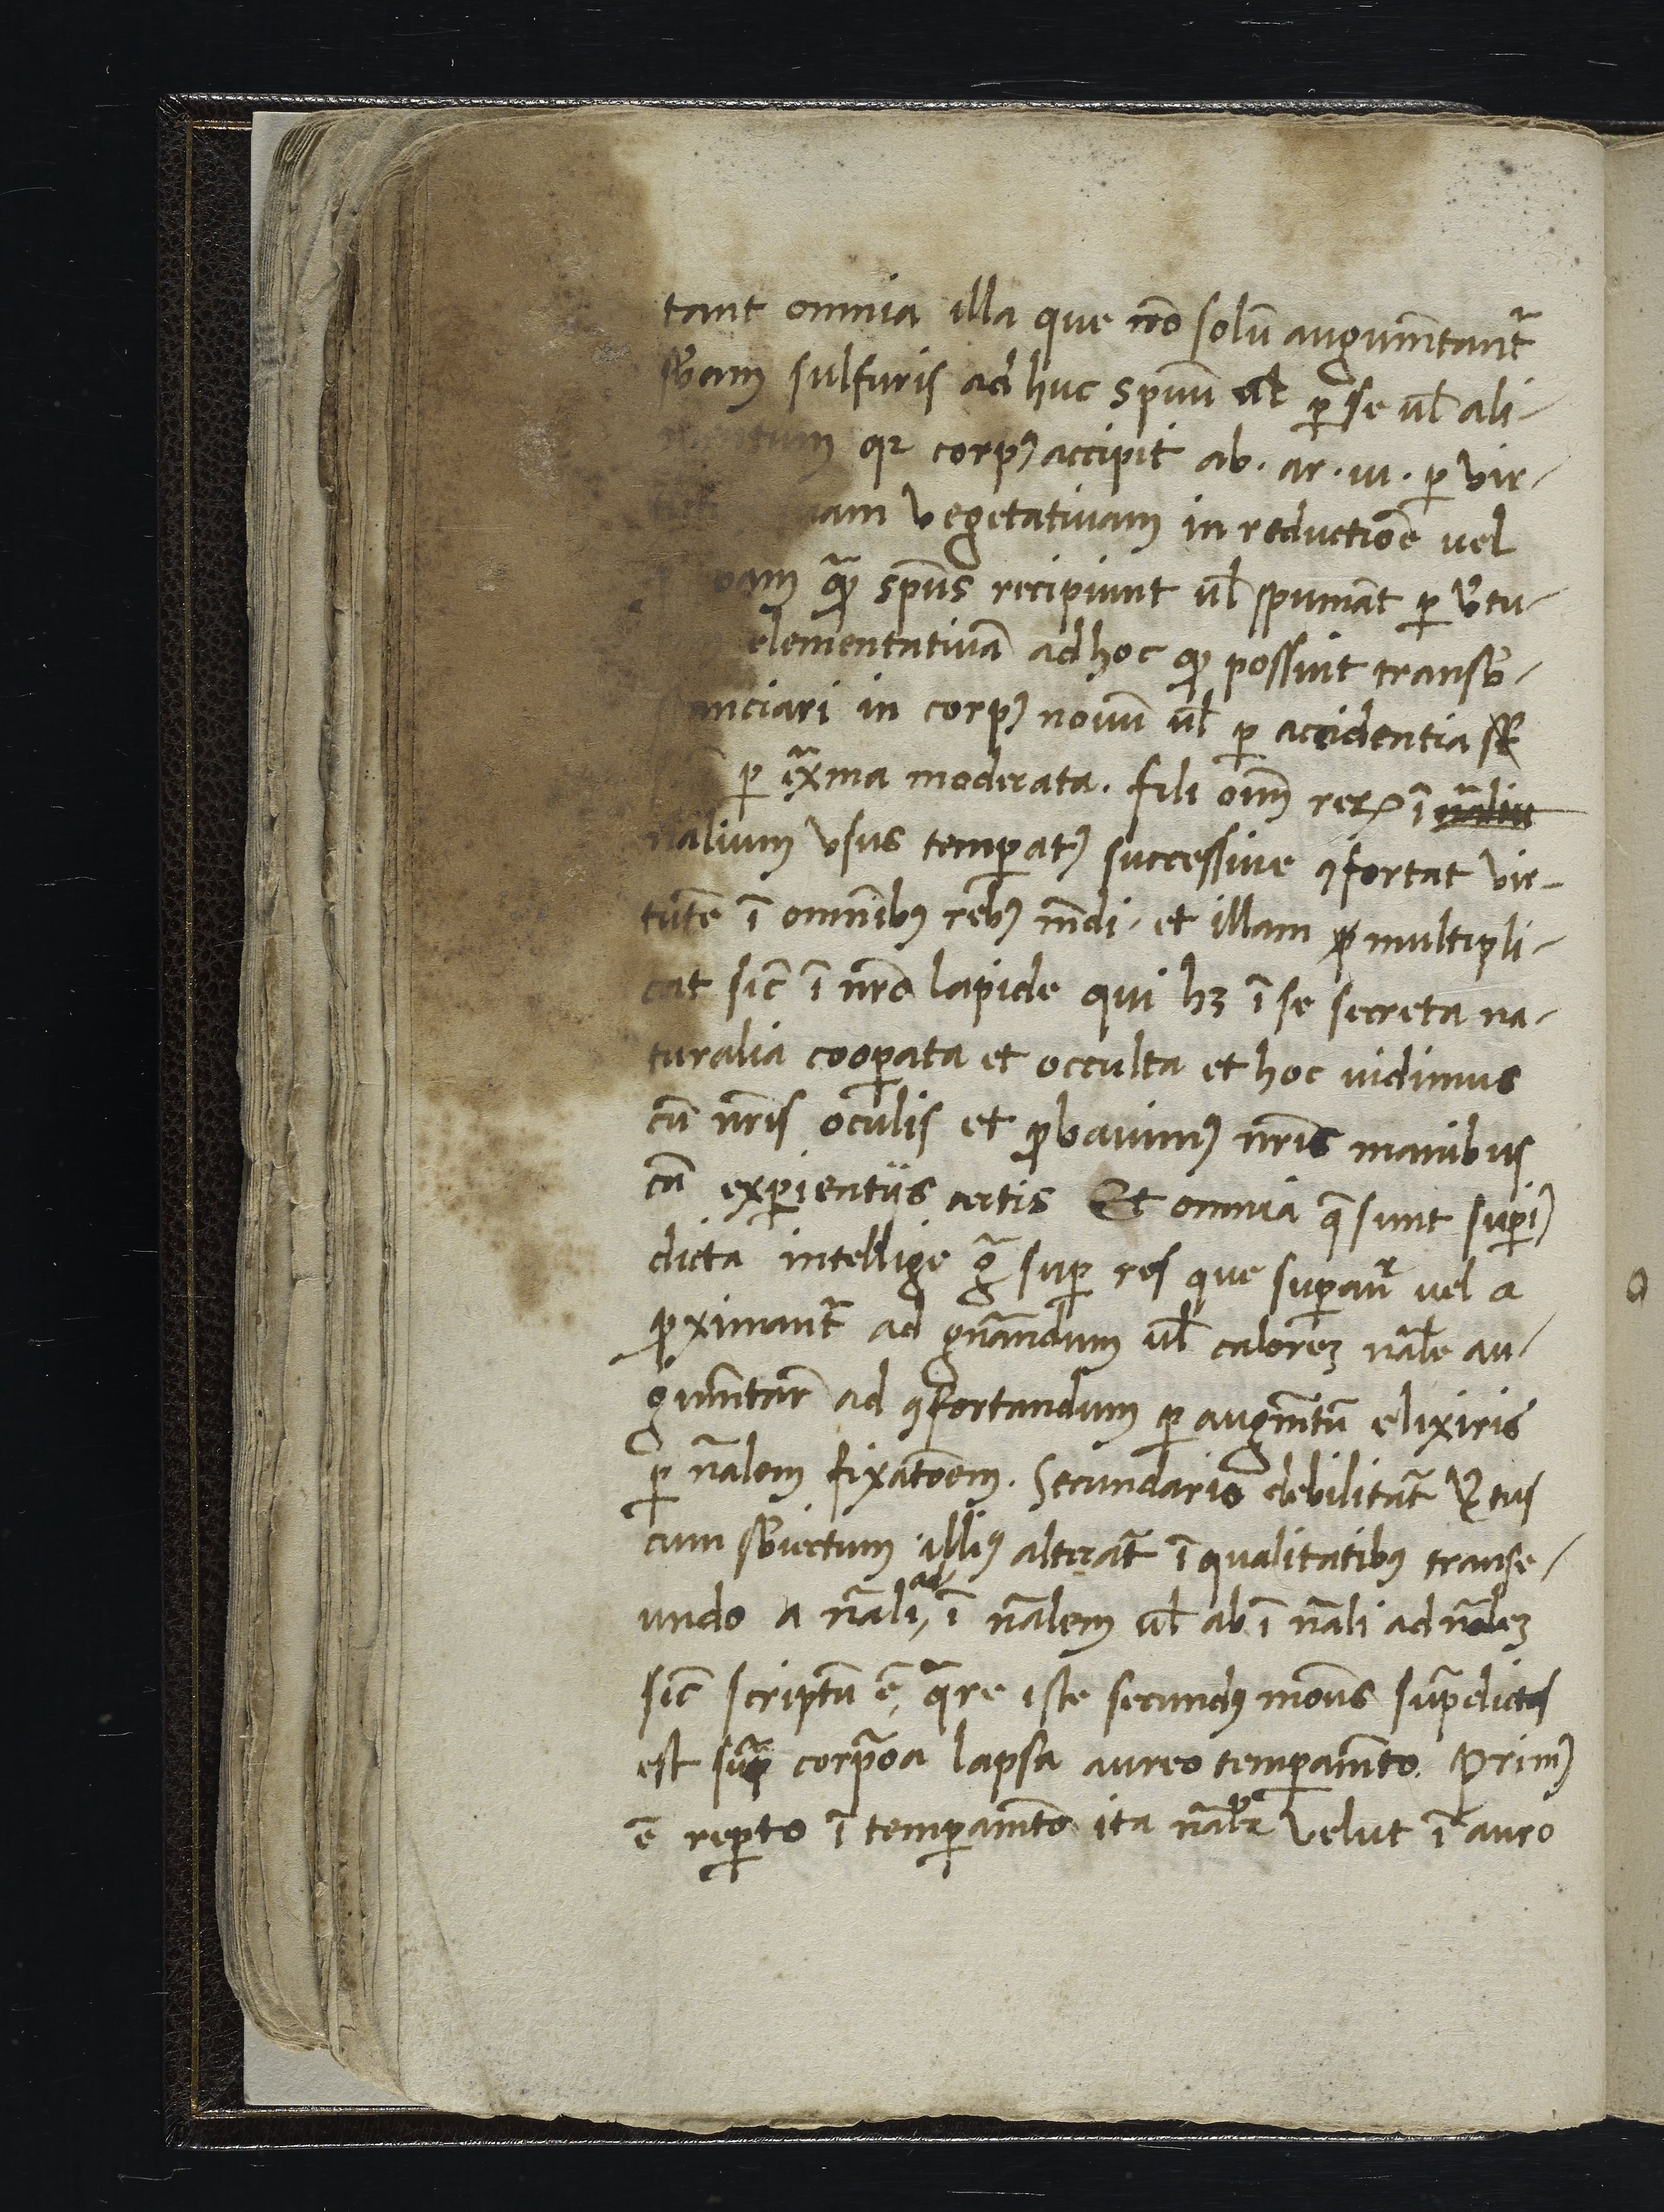 tant omnia illa que nō solū augumētant᷑
sb̄am sulfuris ad huc spūū al̄ ꝑ se ul̄ ali-
mentum qꝛ corpꝰ accipit ab. ar. ui. ꝑ vir-
uam vegetatiuam in reductiōe uel
bam qͣꝫ spūs recipiunt ul̄ spumāt ꝑ v̄tu-
elementatiuā ad hoc qꝫ possint transb̄-
anciari in corpꝰ nouū ul̄ ꝑ accidentia
ꝑ ex̄ma moderata. fili oīm reꝝ ī
nālium vsus temꝑatꝰ successiue ꝯfortat vir-
tutē ī omnībꝰ rebꝰ mūdi. et illam multipli-
cat sic̄ ī nr̄o lapide qui hꝫ ī se secreta na-
turalia cooꝑata et occulta et hoc uidimus
cū nr̄is oculis et ꝓbauimꝰ nr̄is manibus
cū exꝑientiis certis Et omnia q̄ sunt suꝑiꝰ
dicta intellige gͣ suꝑ res que suꝑant᷑ uel a
ꝓximant᷑ ad gn̄andum ul̄ calorēꝫ nāle au-
gumētar̄ ad ꝯfortandum ꝑ augmētū elixiris
ꝑ nālem fixatōem. Secundario debilitat᷑ v̄tus
cum sb̄iectum illiꝰ alterat᷑ ī qualitatibꝰ transe-
undo a nāli ad ī nālem ul̄ ab ī nāli ad nāleꝫ
sic̄ scriptū ē, qͣre iste secundꝰ modus supͣdictꝰ
est supͣ corpora lapsa aureo temꝑamēto. Primꝰ
ē reꝑto ī temꝑamēto ita nālr̄ velut ī auro